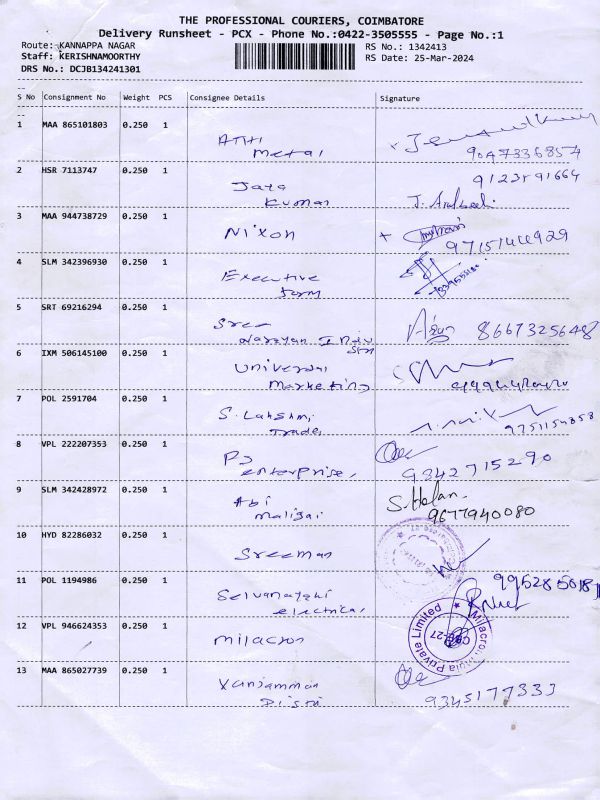 THE PROFESSIONAL COURIERS, COIMBATORE
Delivery Runsheet - PCX - Phone No.:0422-3505555 - Page No.:1
Route: KANNAPPA NAGAR RS No.: 1342413
Staff: KERISHNAMOORTHY RS Date: 25-Mar-2024
DRS No.: DCJB134241301
S No Consignment No Weight PCS Consignee Details Signature
1 MAA 865101803 0.250 1
Metal 9047336857
2 HSR 7113747 0.250 1 9123591664
Jaya
Kumar J.
3 MAA 944738729 0.250 1
Nixon
4 SLM 342396930 0.250 1
Executive
form
5 SRT 69216294 0.250 1
Sree 8667325648
Narayan
6 IXM 506145100 0.250 1
Universal
Marketing
7 POL 2591704 0.250 1
S. Lakshmi
Trades 9751154858
8 VPL 222207353 0.250 1
PJ
enterprise, 9842715290
9 SLM 342428972 0.250 1
Abi S. Helan.
maligai 9677940080
10 HYD 82286032 0.250 1
Sreeman
11 POL 1194986 0.250 1
Selvanayaki
electrical
12 VPL 946624353 0.250 1
milacron
Milacron India Private Limited
CBE-27
13 MAA 865027739 0.250 1
9345177333